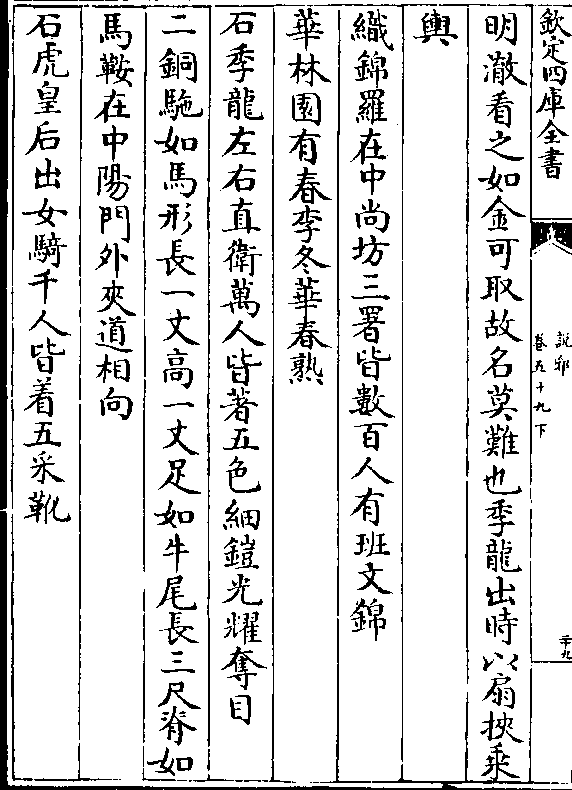 欽定四庫全書
說郛
卷五十九下
二十九
明澈看之如金可取故名莫難也季龍出時以扇挾乘
輿
織錦羅在中尚坊三署皆數百人有班文錦
華林園有春李冬華春熟
石季龍左右直衛萬人皆著五色細鎧光耀奪目
二銅駞如馬形長一丈高一丈足如牛尾長三尺脊如
馬鞍在中陽門外夾道相向
石虎皇后出女騎千人皆着五采靴